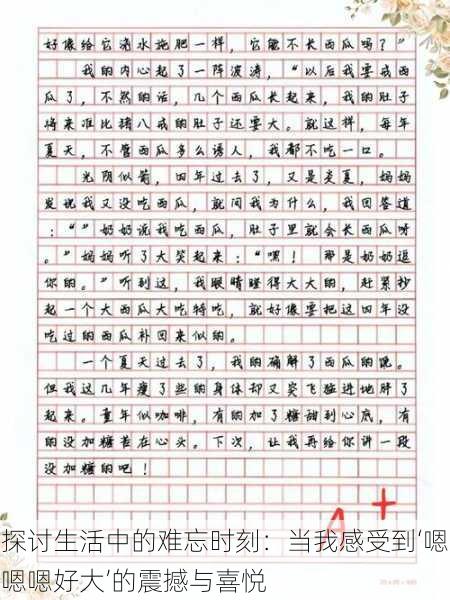 好像给它浇水施肥一样，它能不长西瓜吗？”
我的内心起了一阵波涛，“以后我要戒西
瓜了，不然的话，几个西瓜长起来，我的肚子
将来准比猪八戒的肚子还要大。就这样，每年
夏天，不管西瓜多么诱人，我都不吃一口。
光阴似箭，四年过去了，又是炎夏，妈妈
发现我又没吃西瓜，就问我为什么，我回答道
：“”奶奶说我吃西瓜，肚子里就会长西瓜呀
。”妈妈听了大笑起来：“嘿！那是奶奶逗
你的。”听到这，我眼睛瞪得大大的，赶紧抄
起一个大西瓜大吃特吃，就好像要把这四年没
吃过的西瓜补回来似的。
一个夏天过去了，我的确解了西瓜的馋。
但我这几年瘦了些的身体却又突飞猛进地胖了
起来。童年似咖啡，有的加了糖甜到心底，有
的没加糖苦在心头。下次，让我再给你讲一段
没加糖的吧！
A+
探讨生活中的难忘时刻：当我感受到‘嗯
嗯嗯好大’的震撼与喜悦